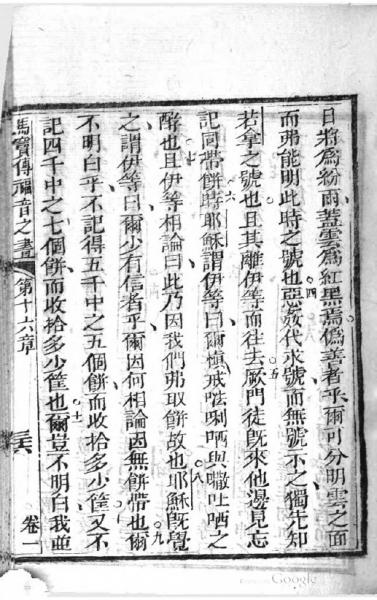 日將為粉雨蓋雲為紅黑焉偽善者乎爾可分明雲之面
而弗能明此時之號也惡姦代求號而無號示之獨先知
若拿之號也且其離伊等而往去厥門徒既來他邊見忘
記同帶餅時耶穌謂伊等曰爾慎戒唎哂與吐哂之
酵也且伊等相論曰此乃因我們弗取餅故也耶穌既覺
之謂伊等曰爾少有信者乎爾因何相論因無餅帶也爾
不明白乎不記得五千中之五個餅而收拾多少筐又不
記四千中之七個餅而收拾多少筐也爾豈不明白我並
馬竇傳福音之書 第十六章 卷一
Google